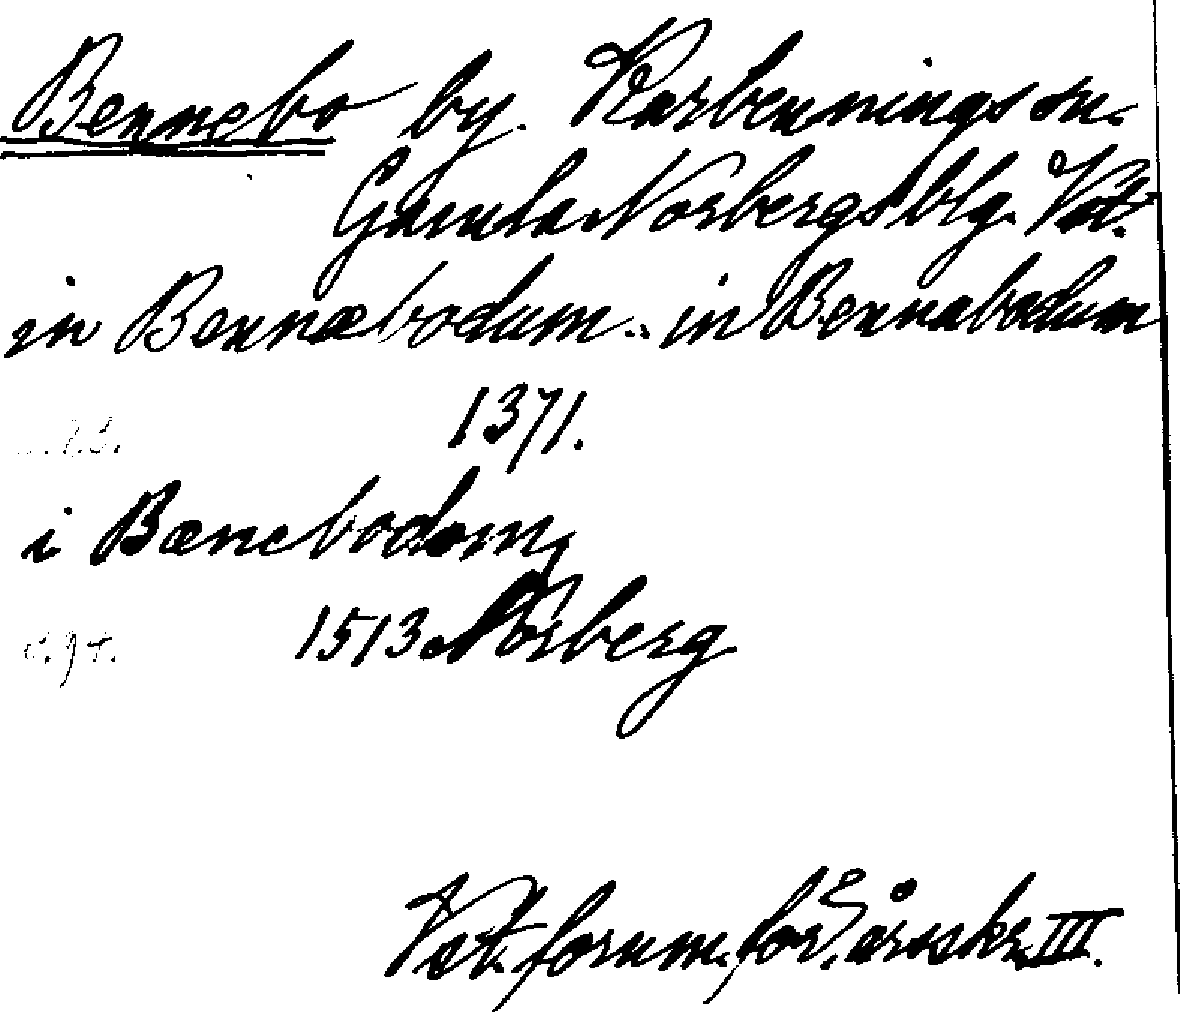 Bennebo by. Karbennings sn.
Gamla Norbergs blg. Vstm.
in Bennæbodum.. in Bennabodum
1371.
i Bænebodom,
1513 Norberg
Vst. fornm. för:s årsskr. III.